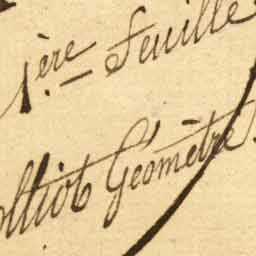 1.ère Feuille
olliot Géomètre.